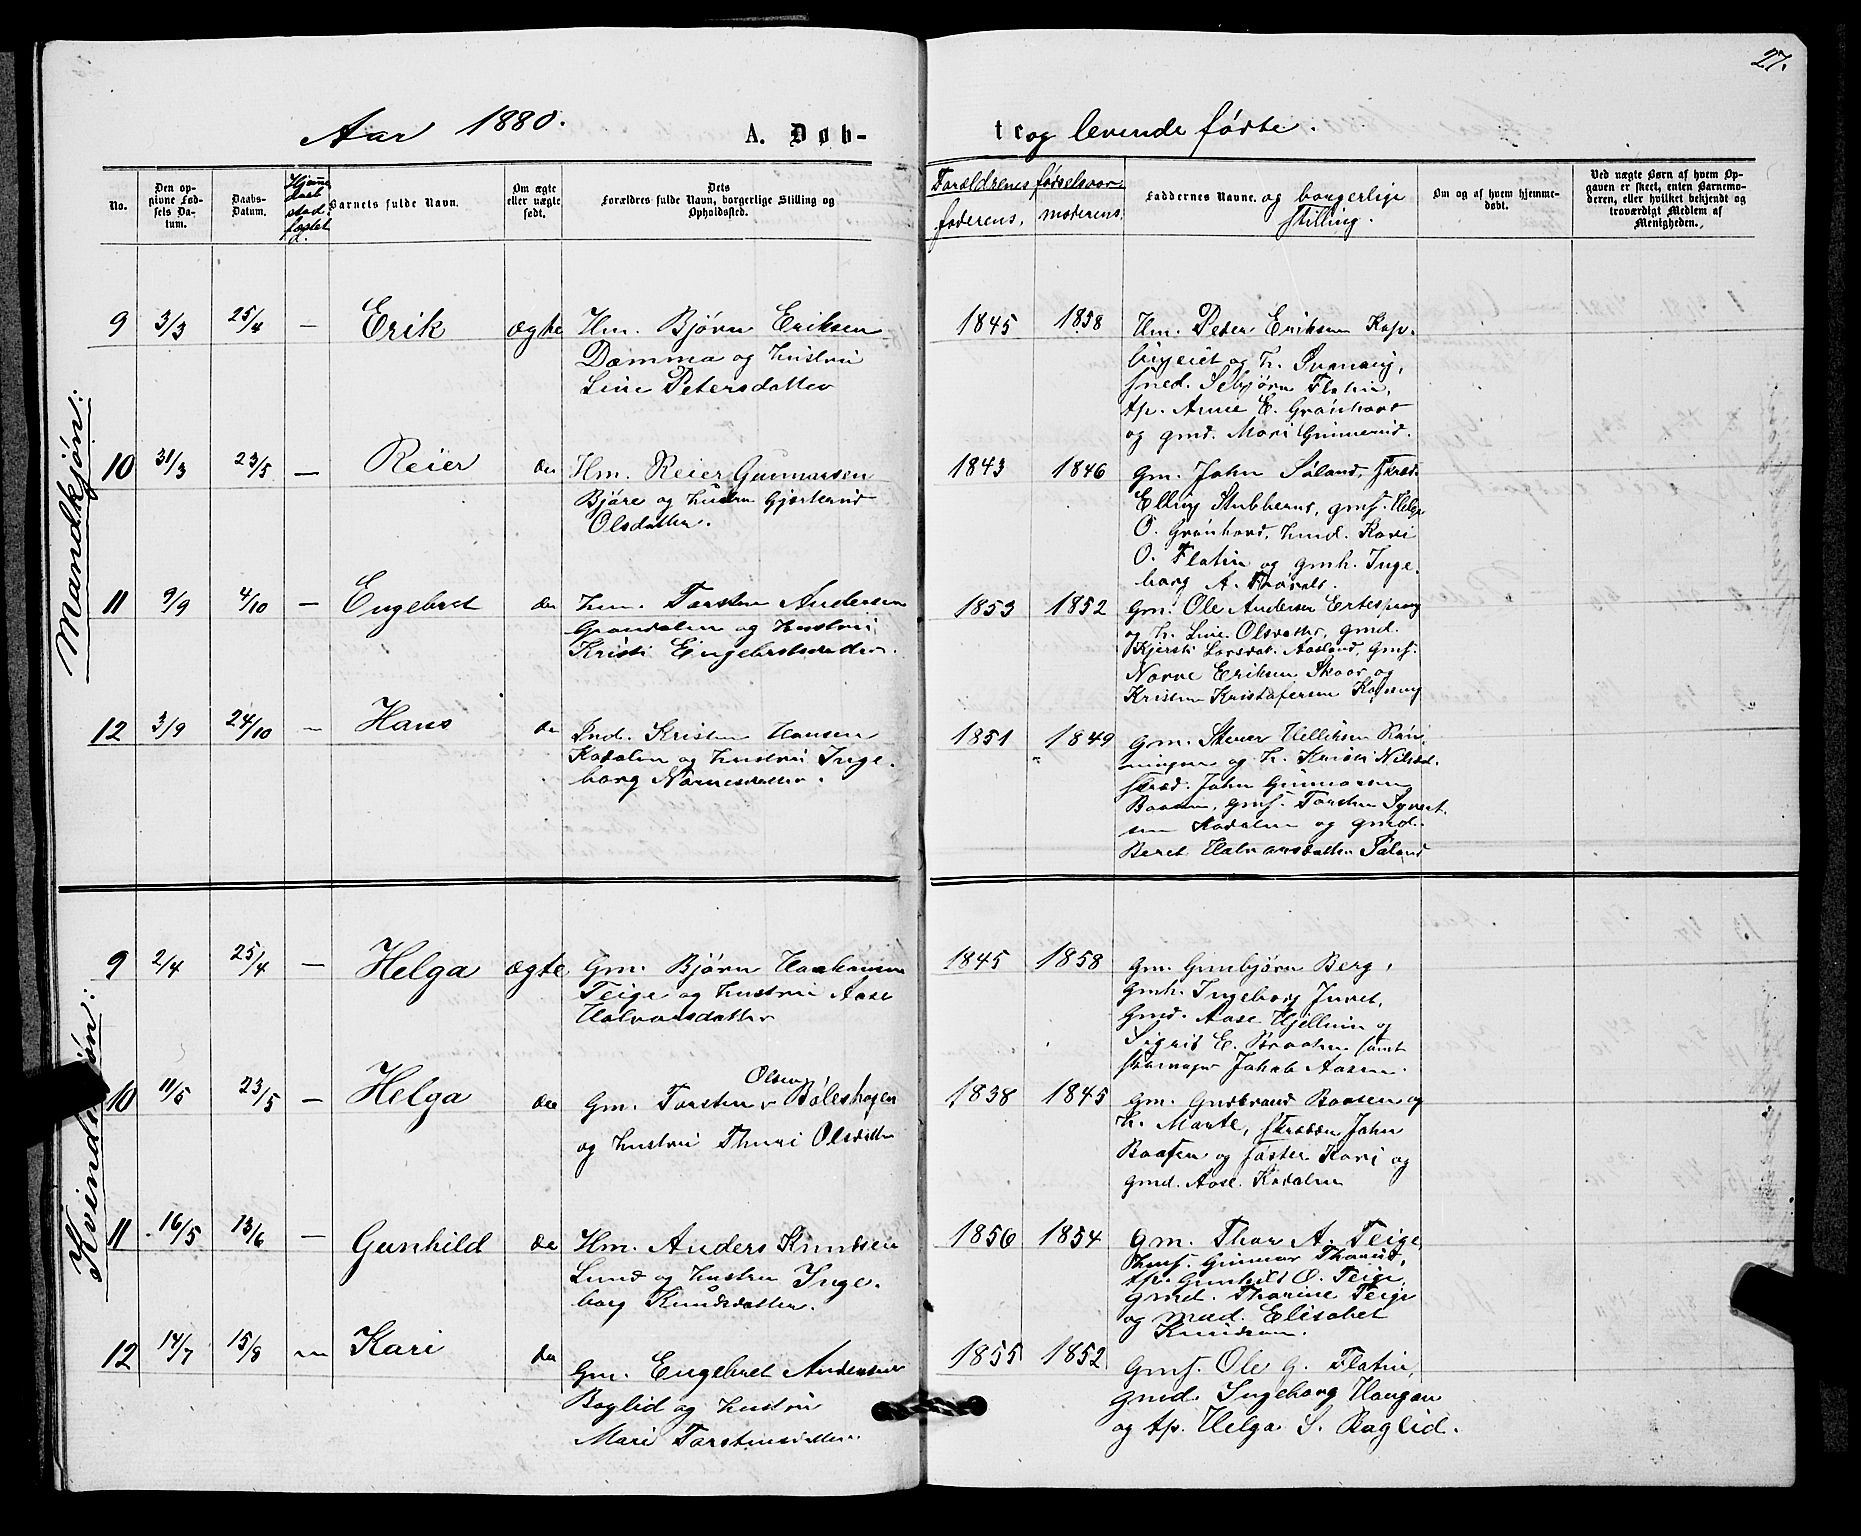 27.
Aar 1880. A. Døb-
te og levende fødte.
No.
Den op-
givne Fød-
sels Da-
tum.
Daabs-
Datum.
Hjemme-
daab
stad-
fæstet
Barnets fulde Navn.
Om ægte
eller uægte
født.
Dets
Forældres fulde Navn, borgerlige Stilling og
Opholdssted.
Forældrenes fødselsaar
faderens. moderens.
Faddernes Navne og borgerlige
Stilling.
Om og af hvem hjemme-
døbt.
Ved uægte Børn af hvem Op-
gaven er skeet, enten Barnemo-
deren, eller hvilket bekjendt og
troværdigt Medlem af
Menigheden.
Mandkjøn:
9 3/3 25/4 — Erik ægte Hm. Bjørn Eriksen
Damma og hustru
Line Petersdatter
1845 1858 Hm. Peder Eriksen Kop-
og h.
Sebjørn Flatin,
tp. Anne E. Grønhovd
og gmd. Mari Gunnerud.
10 31/3 23/5 — Reier do Hm. Reier Gunnarsen
Bjøre og hustru Gjertrud
Olsdatter.
1843 1846 Gm. John Søland, skræd.
Elling Stubberud, gms. Helge
O. Grønhovd, hmd. Kari
O. Flatin og gmh. Inge-
borg A.
11 9/9 4/10 — Engebret do Hm. Torsten Andersen
Grøndalen og hustru
Kristi Engebretsdatter.
1853 1852 Gm. Ole Andersen Ertespring
og h. Line Olsdatter, gmd.
Kjersti Larsdat. Aasland, gms.
Narve Eriksen Skaar og
Kristen Kristofersen
12 3/9 24/10 — Hans do Ind. Kristen Hansen
Kodalen og hustru Inge-
borg Narvesdatter.
1851 1849 Gm. Stener Helliksen Røn-
ningen og h. Nilsdat.
skræd. John Gunnarsen
Baasen, gms. Torsten Syvert-
sen Kodalen og gmd.
Beret Halvorsdatter Søland
Kvindekjøn:
9 2/4 25/4 — Helga ægte Gm. Bjørn Haakonsen
Teige og hustru Aase
Halvorsdatter
1845 1858 Gm. Gunbjørn Berg,
Gmh. Ingeborg Juvet,
Gmd. Aase Hjellum og
Sigrid E. Braaten samt
skomager Jakob Aasen.
10 11/5 23/5 — Helga do Gm. Torsten Olsen Bøleshagen
og hustru Thuri Olsdatter
1838 1845 Gm. Gudbrand Baasen og
h. Marte, skrædder John
Baasen og søster Kari og
gmd. Aase Kodalen
11 16/5 13/6 — Gunhild do Hm. Anders Knudsen
Lund og hustru Inge-
borg Knudsdatter.
1856 1854 Gm. Thor A. Teige,
hms. Gunnar Thorud,
tp. Gunhild O. Teige,
gmd. Thorine Teige
og mad. Elisabet
Knudsen.
12 14/7 15/8 — Kari do Gm. Engebret Andersen
Baglid og hustru
Mari Torstensdatter.
1855 1852 Gms. Ole G. Flatin,
gmd. Ingeborg Haugan
og tp. Helga S. Baglid.